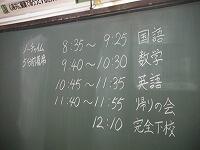 ノーチャイム
5分前着席
8:35〜9:25 国語
9:40〜10:30 数学
10:45〜11:35 英語
11:40〜11:55 帰りの会
12:10 完全下校